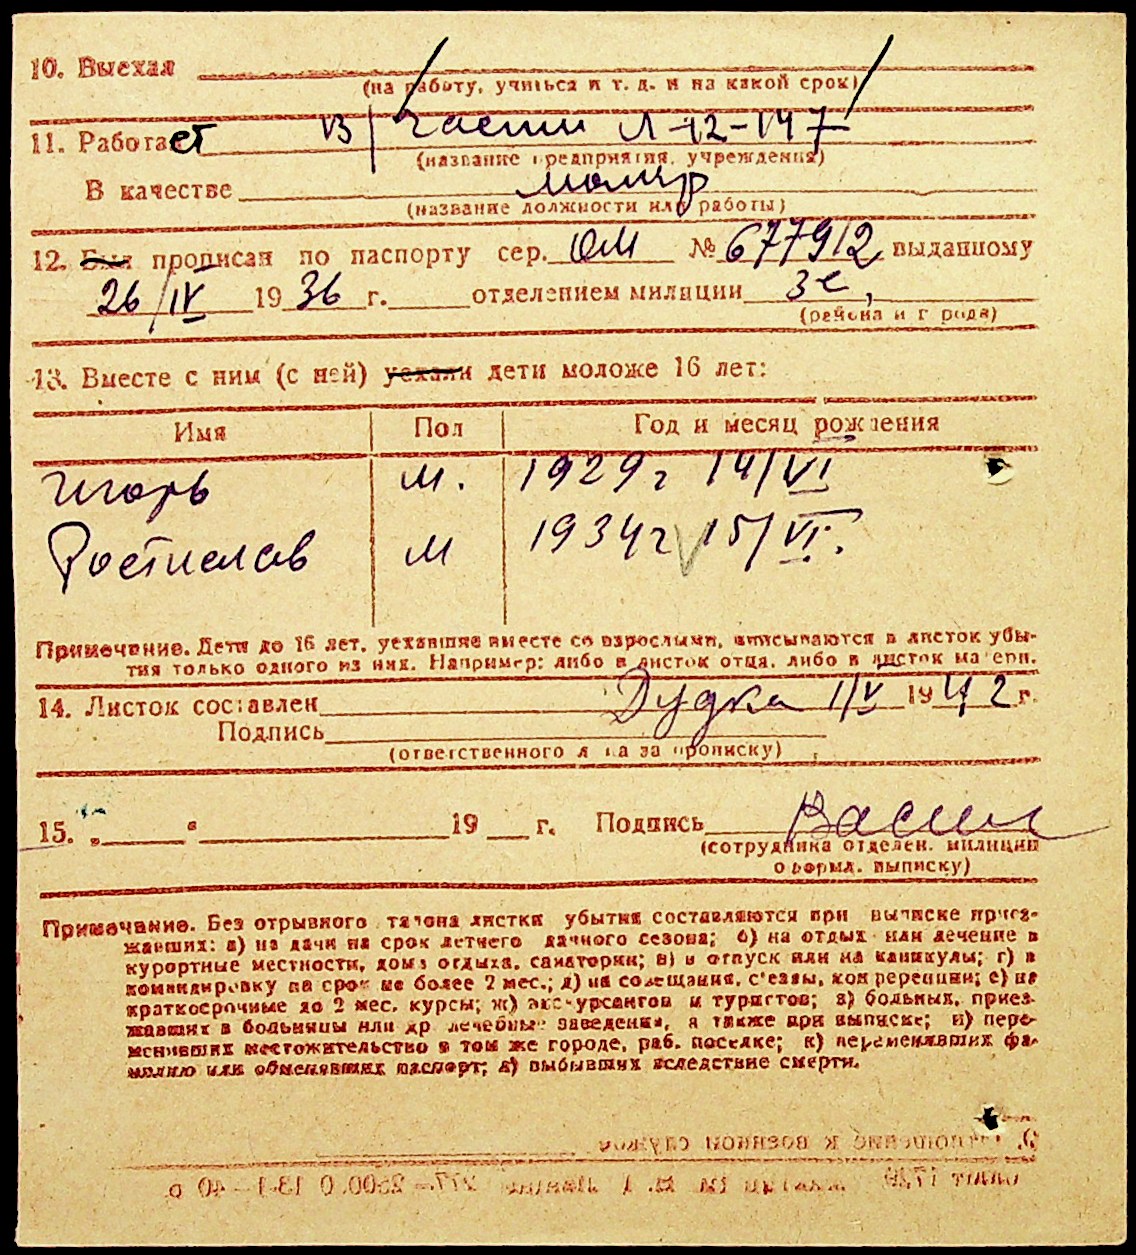 10. Выехал
(на работу, учиться и т. д. и на какой срок)
11. Работает в/ части Л-12-147
(название предприятия, учреждения)
В качестве маляр
(название должности или работы)
12. Был прописан по паспорту сер. ОМ № 677912 выданному
26/IV 1936 г. отделением милиции 3е,
(района и города)
13. Вместе с ним (с ней) уехали дети моложе 16 лет:
Имя Пол Год и месяц рождения
Игорь м. 1929 г 14/VI
Ростислав м 1934 г 15/VI.
Примечание. Дети до 16 лет, уехавшие вместе со взрослыми, вписываются в листок убы-
тия только одного из них. Например: либо в листок отца, либо в листок матери.
14. Листок составлен Дудка 1/V 1942 г.
Подпись
(ответственного лица за прописку)
15. „ “ 19 г. Подпись
(сотрудника отделен. милиции
оформл. выписку)
Примечание. Без отрывного талона листки убытия составляются при выписке приез-
жавших: а) на дачи на срок летнего дачного сезона; б) на отдых или лечение в
курортные местности, дома отдыха, санатории; в) в отпуск или на каникулы; г) в
командировку на срок не более 2 мес.; д) на совещания, съезды, конференции; е) на
краткосрочные до 2 мес. курсы; ж) экскурсантов и туристов; з) больных, приез-
жавших в больницы или др. лечебные заведения, а также при выписке; и) пере-
менивших местожительство в том же городе, раб. поселке; к) переменивших фа-
милию или обменявших паспорт; л) выбывших вследствие смерти.
9. Отношение к военной службе